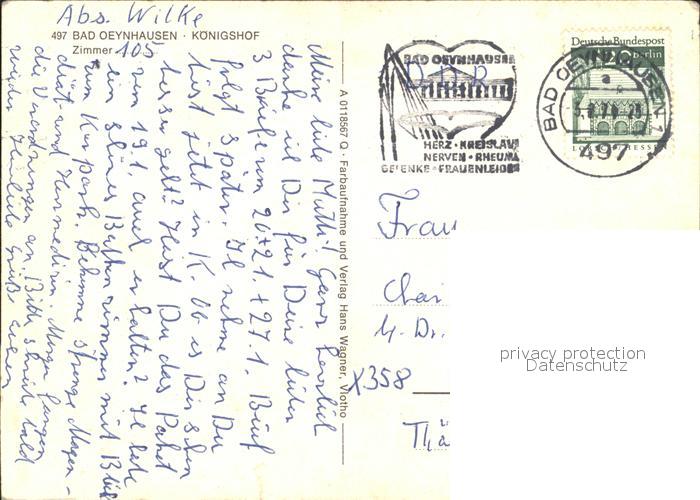 Abs. Wilke
497 BAD OEYNHAUSEN · KÖNIGSHOF
Zimmer 105
Meine liebe Mutti! Ganz herzlich
danke ich Dir für Deine lieben
3 Briefe vom 20. + 21. + 27.1. Brief
folgt später. Ich nehme an Du
bist jetzt in K. Ob es Dir schon
besser geht? Hast Du das Paket
vom 19.1. auch erhalten? Ich habe
ein schönes Balkonzimmer mit Blick
zum Kurpark. Bekomme strenge Magen-
diät und Herzmedizin. Morgen fangen
die Verordnungen an. Bitte schreib bald
wieder. Herzliche Grüße
A 0118567 Q · Farbaufnahme und Verlag Hans Wagner, Vlotho
BAD OEYNHAUSEN
HERZ · KREISLAUF
NERVEN · RHEUMA
GELENKE · FRAUENLEIDEN
BAD OEYNHAUSEN 1
a
497
Deutsche Bundespost
Berlin
Frau
X358
Thü
privacy protection
Datenschutz